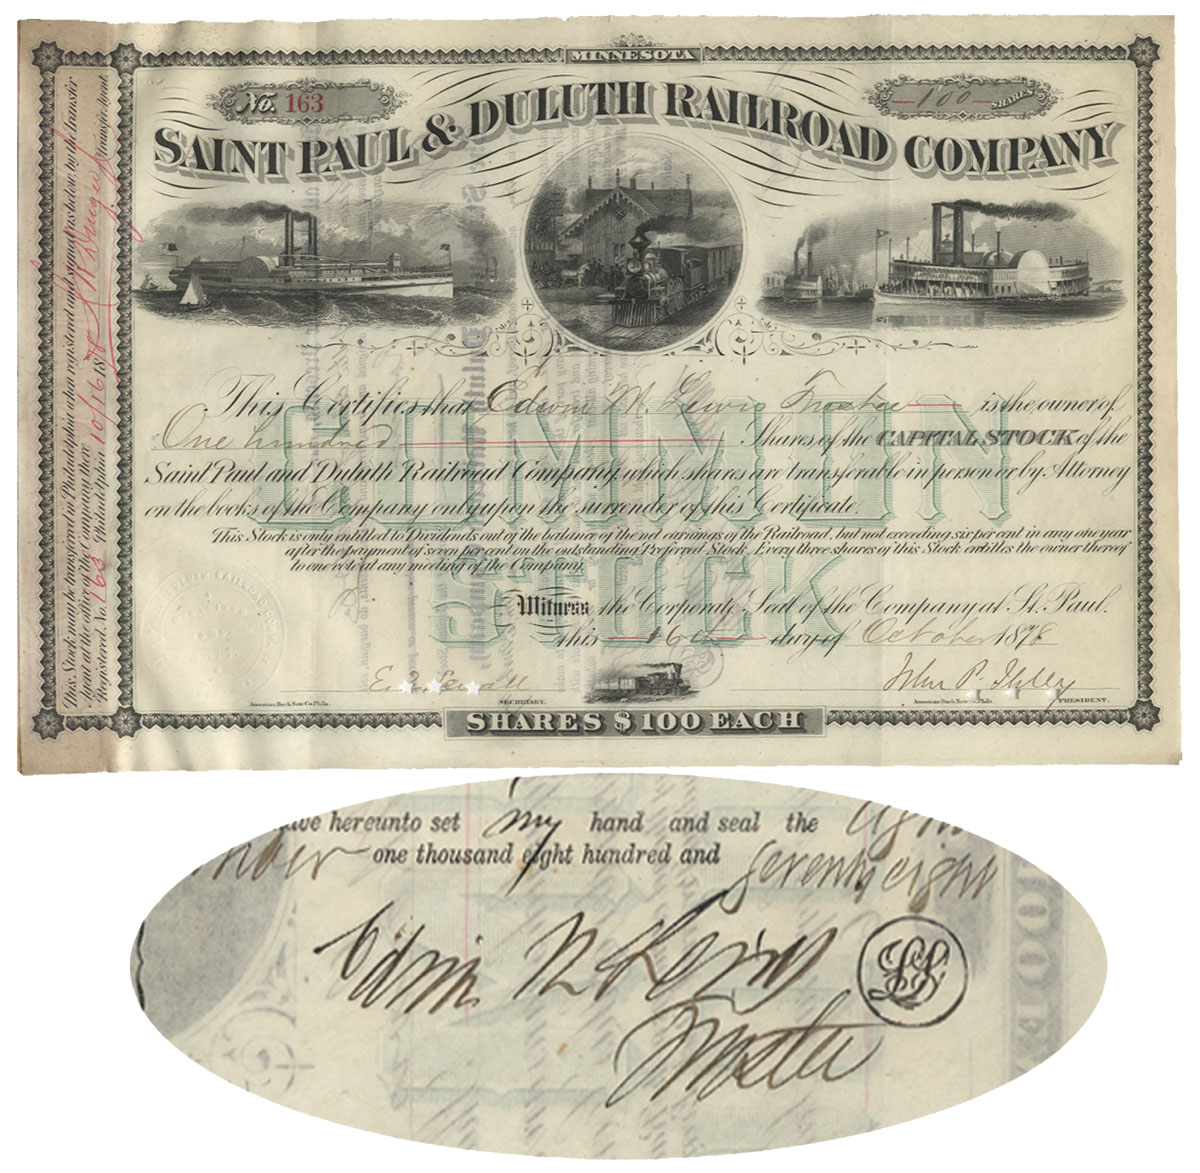 MINNESOTA
No. 163
—100— SHARES
SAINT PAUL & DULUTH RAILROAD COMPANY
This Stock may be transferred in Philadelphia when registered and signed as below by the transfer
Agent at the office of the Company then
Registered No. 163 Philadelphia 10/16 187 Transfer Agent.
This Certifies that Edwin M. Lewis Trustee is the owner of
One hundred Shares of the CAPITAL STOCK of the
Saint Paul and Duluth Railroad Company, which shares are transferable in person or by Attorney
on the books of the Company only upon the surrender of this Certificate.
This Stock is only entitled to Dividends out of the balance of the net earnings of the Railroad, but not exceeding six per cent in any one year
after the payment of seven per cent on the outstanding Preferred Stock. Every three shares of this Stock entitles the owner thereof
to one vote at any meeting of the Company.
COMMON
STOCK
Witness, the Corporate Seal of the Company at St. Paul.
this 16th day of October 1878
SECRETARY.
John P. PRESIDENT.
American Bank Note Co. Phila.
American Bank Note Co. Phila.
SHARES $100 EACH
hereunto set my hand and seal the
one thousand eight hundred and seventy eight
Edwin M Lewis
LS
Trustee